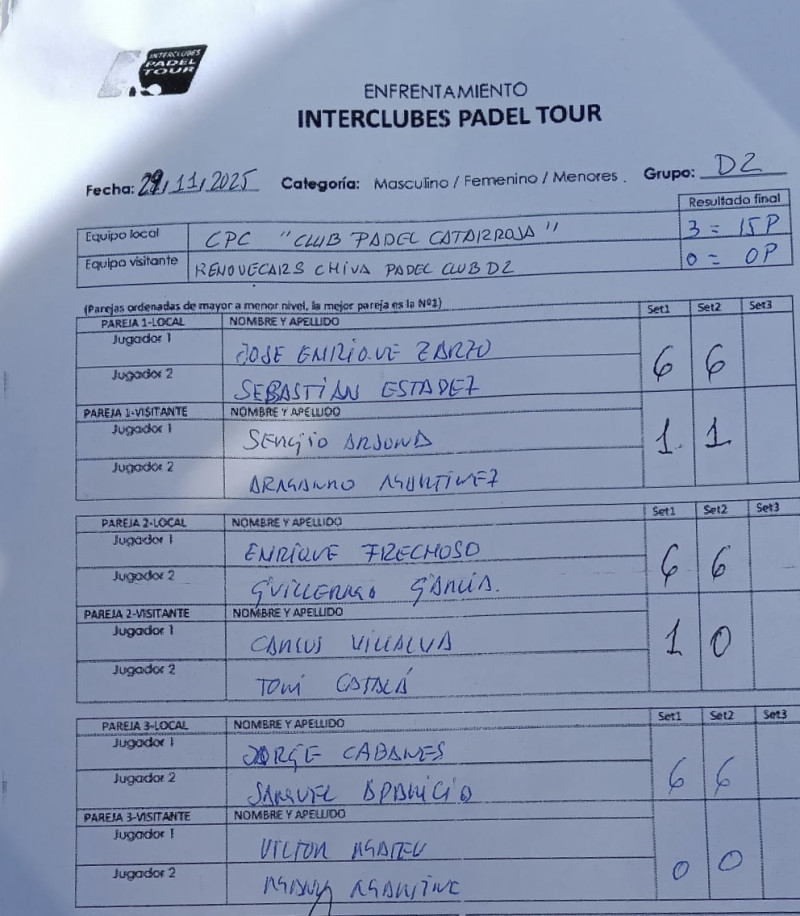 INTERCLUBES
PADEL
TOUR
ENFRENTAMIENTO
INTERCLUBES PADEL TOUR
Fecha: 29/11/2025 Categoría: Masculino / Femenino / Menores . Grupo: D2
Resultado final
Equipo local CPC "CLUB PADEL CATARROJA" 3 = 15P
Equipo visitante RENOVECARS CHIVA PADEL CLUB D2 0 = 0P
(Parejas ordenadas de mayor a menor nivel, la mejor pareja es la Nº1)
PAREJA 1-LOCAL NOMBRE Y APELLIDO Set1 Set2 Set3
Jugador 1 JOSE ENRIQUE ZARZO 6 6
Jugador 2 SEBASTIÁN
PAREJA 1-VISITANTE NOMBRE Y APELLIDO
Jugador 1 SERGIO ARJONA 1 1
Jugador 2
PAREJA 2-LOCAL NOMBRE Y APELLIDO Set1 Set2 Set3
Jugador 1 ENRIQUE FRECHOSO 6 6
Jugador 2 GUILLERMO GARCIA.
PAREJA 2-VISITANTE NOMBRE Y APELLIDO
Jugador 1 CARLOS VILLALVA 1 0
Jugador 2 TONI CATALÁ
PAREJA 3-LOCAL NOMBRE Y APELLIDO Set1 Set2 Set3
Jugador 1 JORGE CABANES 6 6
Jugador 2 SAMUEL APARICIO
PAREJA 3-VISITANTE NOMBRE Y APELLIDO
Jugador 1 VICTOR MATEU 0 0
Jugador 2